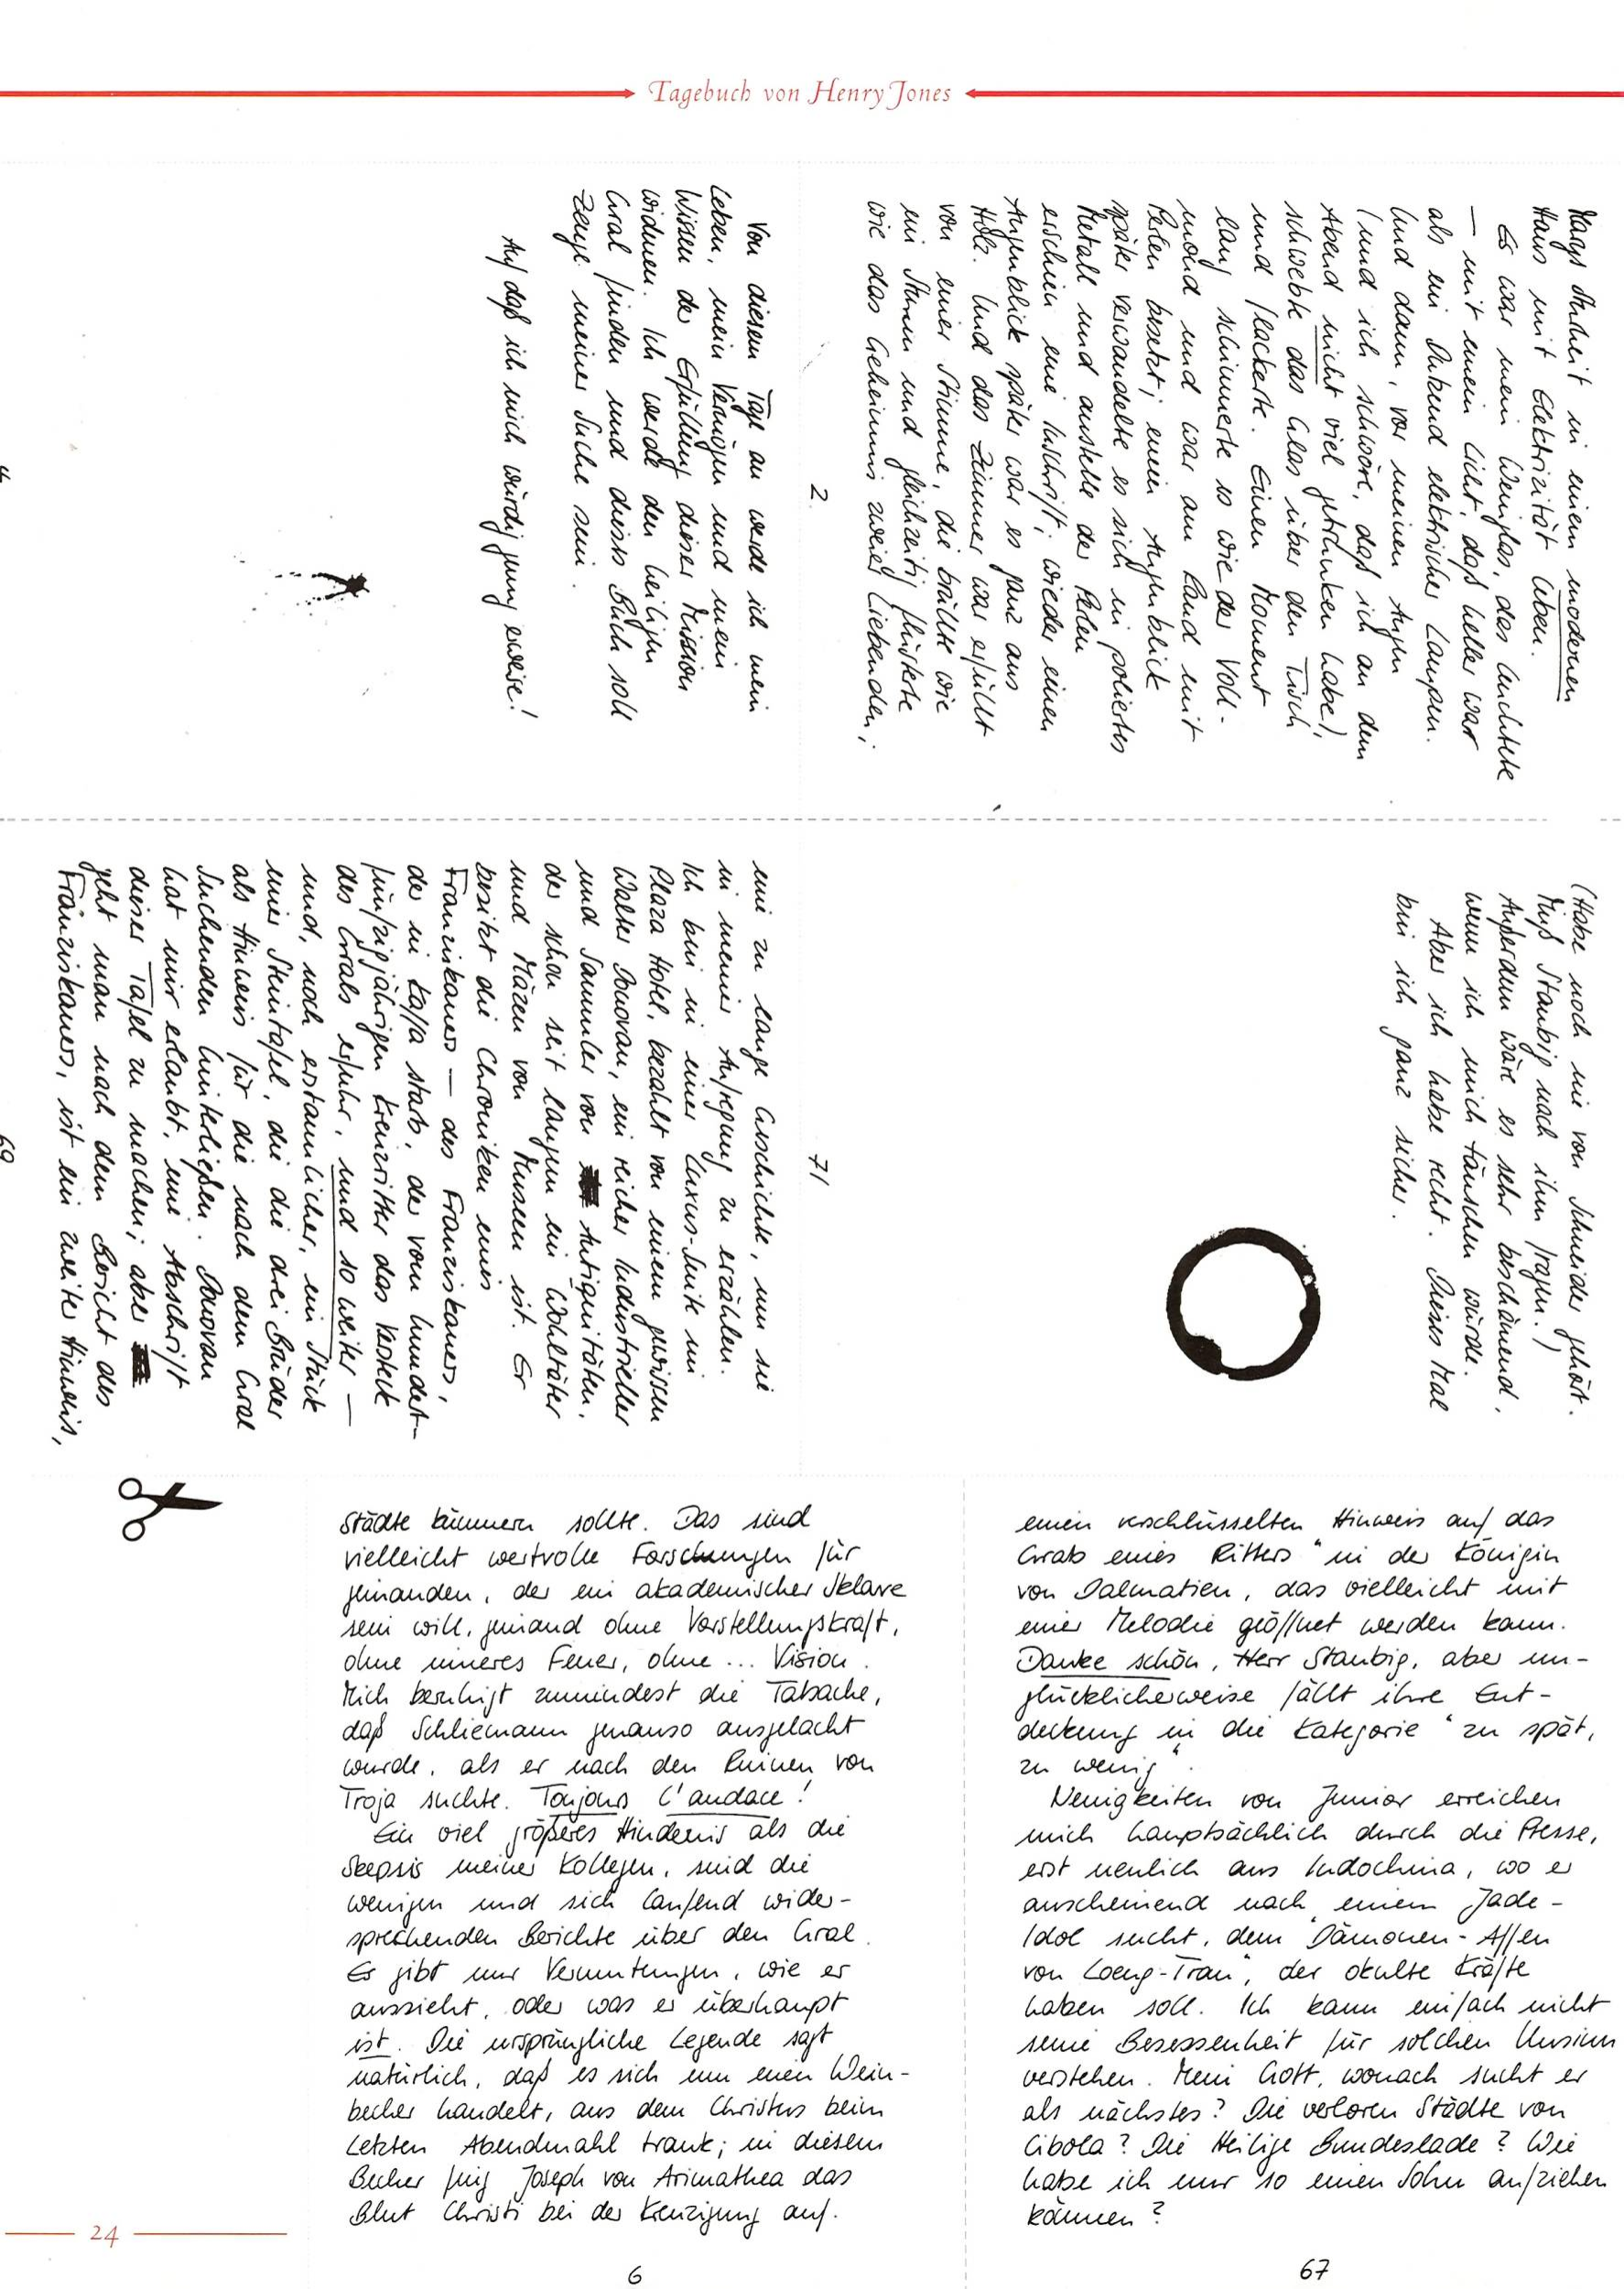 Tagebuch von Henry Jones
Haus mit Elektrizität leben.
Es war mein Weinglas, das leuchtete
– mit einem Licht, daß heller war
als ein Dutzend elektrischer Lampen.
Und dann, vor meinen Augen
(und ich schwöre, daß ich an dem
Abend nicht viel getrunken habe!),
schwebte das Glas über den Tisch
und flackerte. Einen Moment
lang schimmerte es wie der Voll-
mond und war am Rand mit
Perlen besetzt; einen Augenblick
später verwandelte es sich in poliertes
Metall und anstelle der Perlen
erschien eine Inschrift; wieder einen
Augenblick später war es ganz aus
Holz. Und das Zimmer war erfüllt
von einer Stimme, die brüllte wie
ein Sturm und gleichzeitig flüsterte
wie das Geheimnis zweier Liebenden;
2
Von diesem Tage an werde ich mein
Leben, mein Vermögen und mein
Wissen der Erfüllung dieser Mission
widmen. Ich werde den heiligen
Gral finden und dieses Buch soll
Zeuge meiner Suche sein.
Auf daß ich mich würdig genug erweise!
(Habe noch nie von Schneider gehört.
Muß Staubig nach ihm fragen.)
Außerdem wäre es sehr beschämend,
wenn ich mich täuschen würde.
Aber ich habe recht. Dieses Mal
bin ich ganz sicher.
71
eine zu lange Geschichte, um sie
in meiner Aufregung zu erzählen.
Ich bin in einer Luxus-Suite im
Plaza Hotel, bezahlt von einem gewissen
Walter Donovan, ein reicher Industrieller
und Sammler von Antiquitäten,
der schon seit langem ein Wohltäter
und Mäzen von Museen ist. Er
besitzt die Chroniken eines
Franziskaners – des Franziskaners,
der in Kaffa starb, der vom hundert-
fünfzigjährigen Kreuzritter das Versteck
des Grals erfuhr, und so weiter –
und, noch erstaunlicher, ein Stück
einer Steintafel, die die drei Brüder
als Hinweis für die nach dem Gral
Suchenden hinterließen. Donovan
hat mir erlaubt, eine Abschrift
dieser Tafel zu machen; aber
geht man nach dem Bericht des
Franziskaners, ist ein zweiter Hinweis,
69
Städte kümmern sollte. Das sind
vielleicht wertvolle Forschungen für
jemanden, der ein akademischer Sklave
sein will, jemand ohne Vorstellungskraft,
ohne inneres Feuer, ohne ... Vision.
Mich beruhigt zumindest die Tatsache,
daß Schliemann genauso ausgelacht
wurde, als er nach den Ruinen von
Troja suchte. Toujours l'audace!
Ein viel größeres Hindernis als die
Skepsis meiner Kollegen, sind die
wenigen und sich laufend wider-
sprechenden Berichte über den Gral.
Es gibt nur Vermutungen, wie er
aussieht, oder was er überhaupt
ist. Die ursprüngliche Legende sagt
natürlich, daß es sich um einen Wein-
becher handelt, aus dem Christus beim
Letzten Abendmahl trank; in diesem
Becher fing Joseph von Arimathea das
Blut Christi bei der Kreuzigung auf.
6
einen verschlüsselten Hinweis auf das
Grab eines Ritters "in der Königin
von Dalmatien, das vielleicht mit
einer Melodie geöffnet werden kann.
Danke schön, Herr Staubig, aber un-
glücklicherweise fällt ihre Ent-
deckung in die Kategorie "zu spät,
zu wenig".
Neuigkeiten von Junior erreichen
mich hauptsächlich durch die Presse,
erst neulich aus Indochina, wo er
anscheinend nach einem Jade-
Idol sucht, dem "Dämonen-Affen
von Loeng-Tran", der okulte Kräfte
haben soll. Ich kann einfach nicht
seine Besessenheit für solchen Unsinn
verstehen. Mein Gott, wonach sucht er
als nächstes? Die verloren Städte von
Cibola? Die Heilige Bundeslade? Wie
habe ich nur so einen Sohn aufziehen
können?
67
24